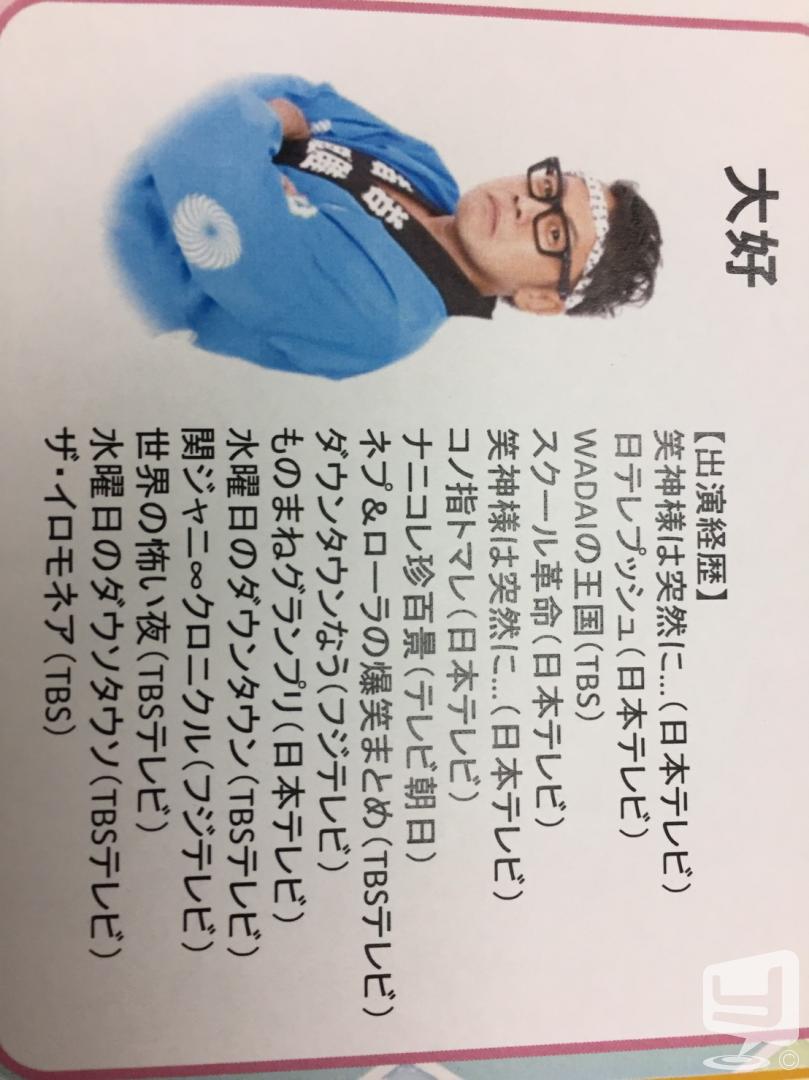 大好
【出演経歴】
笑神様は突然に…(日本テレビ)
日テレプッシュ(日本テレビ)
WADAIの王国(TBS)
スクール革命(日本テレビ)
笑神様は突然に…(日本テレビ)
コノ指トマレ(日本テレビ)
ナニコレ珍百景(テレビ朝日)
ネプ&ローラの爆笑まとめ(TBSテレビ)
ダウンタウンなう(フジテレビ)
ものまねグランプリ(日本テレビ)
水曜日のダウンタウン(TBSテレビ)
関ジャニ∞クロニクル(フジテレビ)
世界の怖い夜(TBSテレビ)
水曜日のダウソタウソ(TBSテレビ)
ザ・イロモネア(TBS)
©